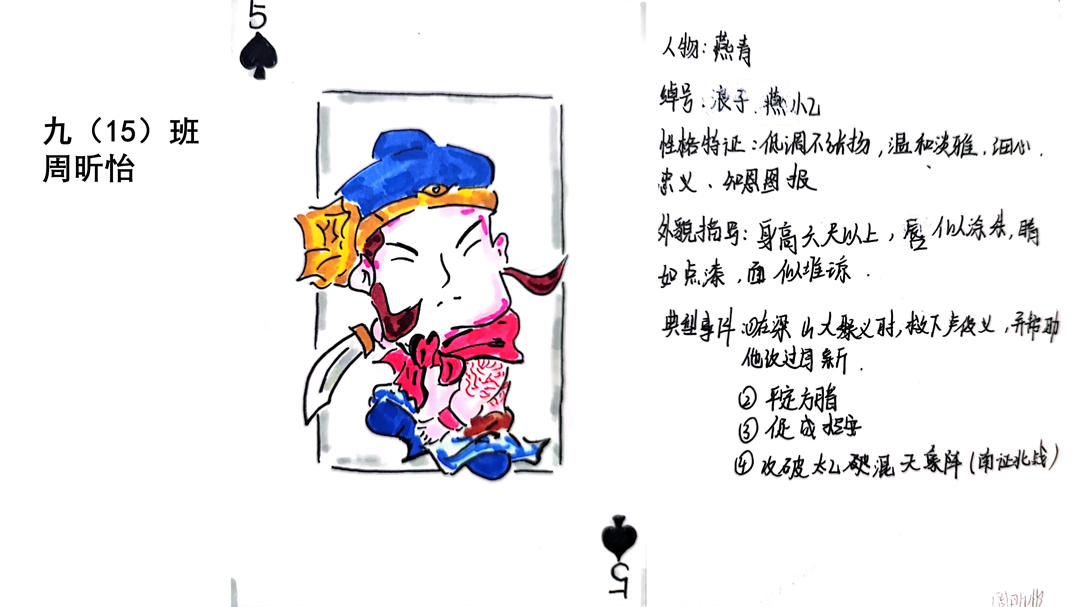 5
九（15）班
周昕怡
人物：燕青
绰号：浪子、燕小乙
性格特证：低调不张扬，温和淡雅、细心、
忠义、知恩图报
外貌描写：身高六尺以上，唇似涂朱，睛
如点漆，面似堆琼．
典型事件①在梁山大聚义时，救下卢俊义，并帮助
他
②平定方腊
③促成招安
④攻破太乙混天象阵（南征北战）
5
周昕怡